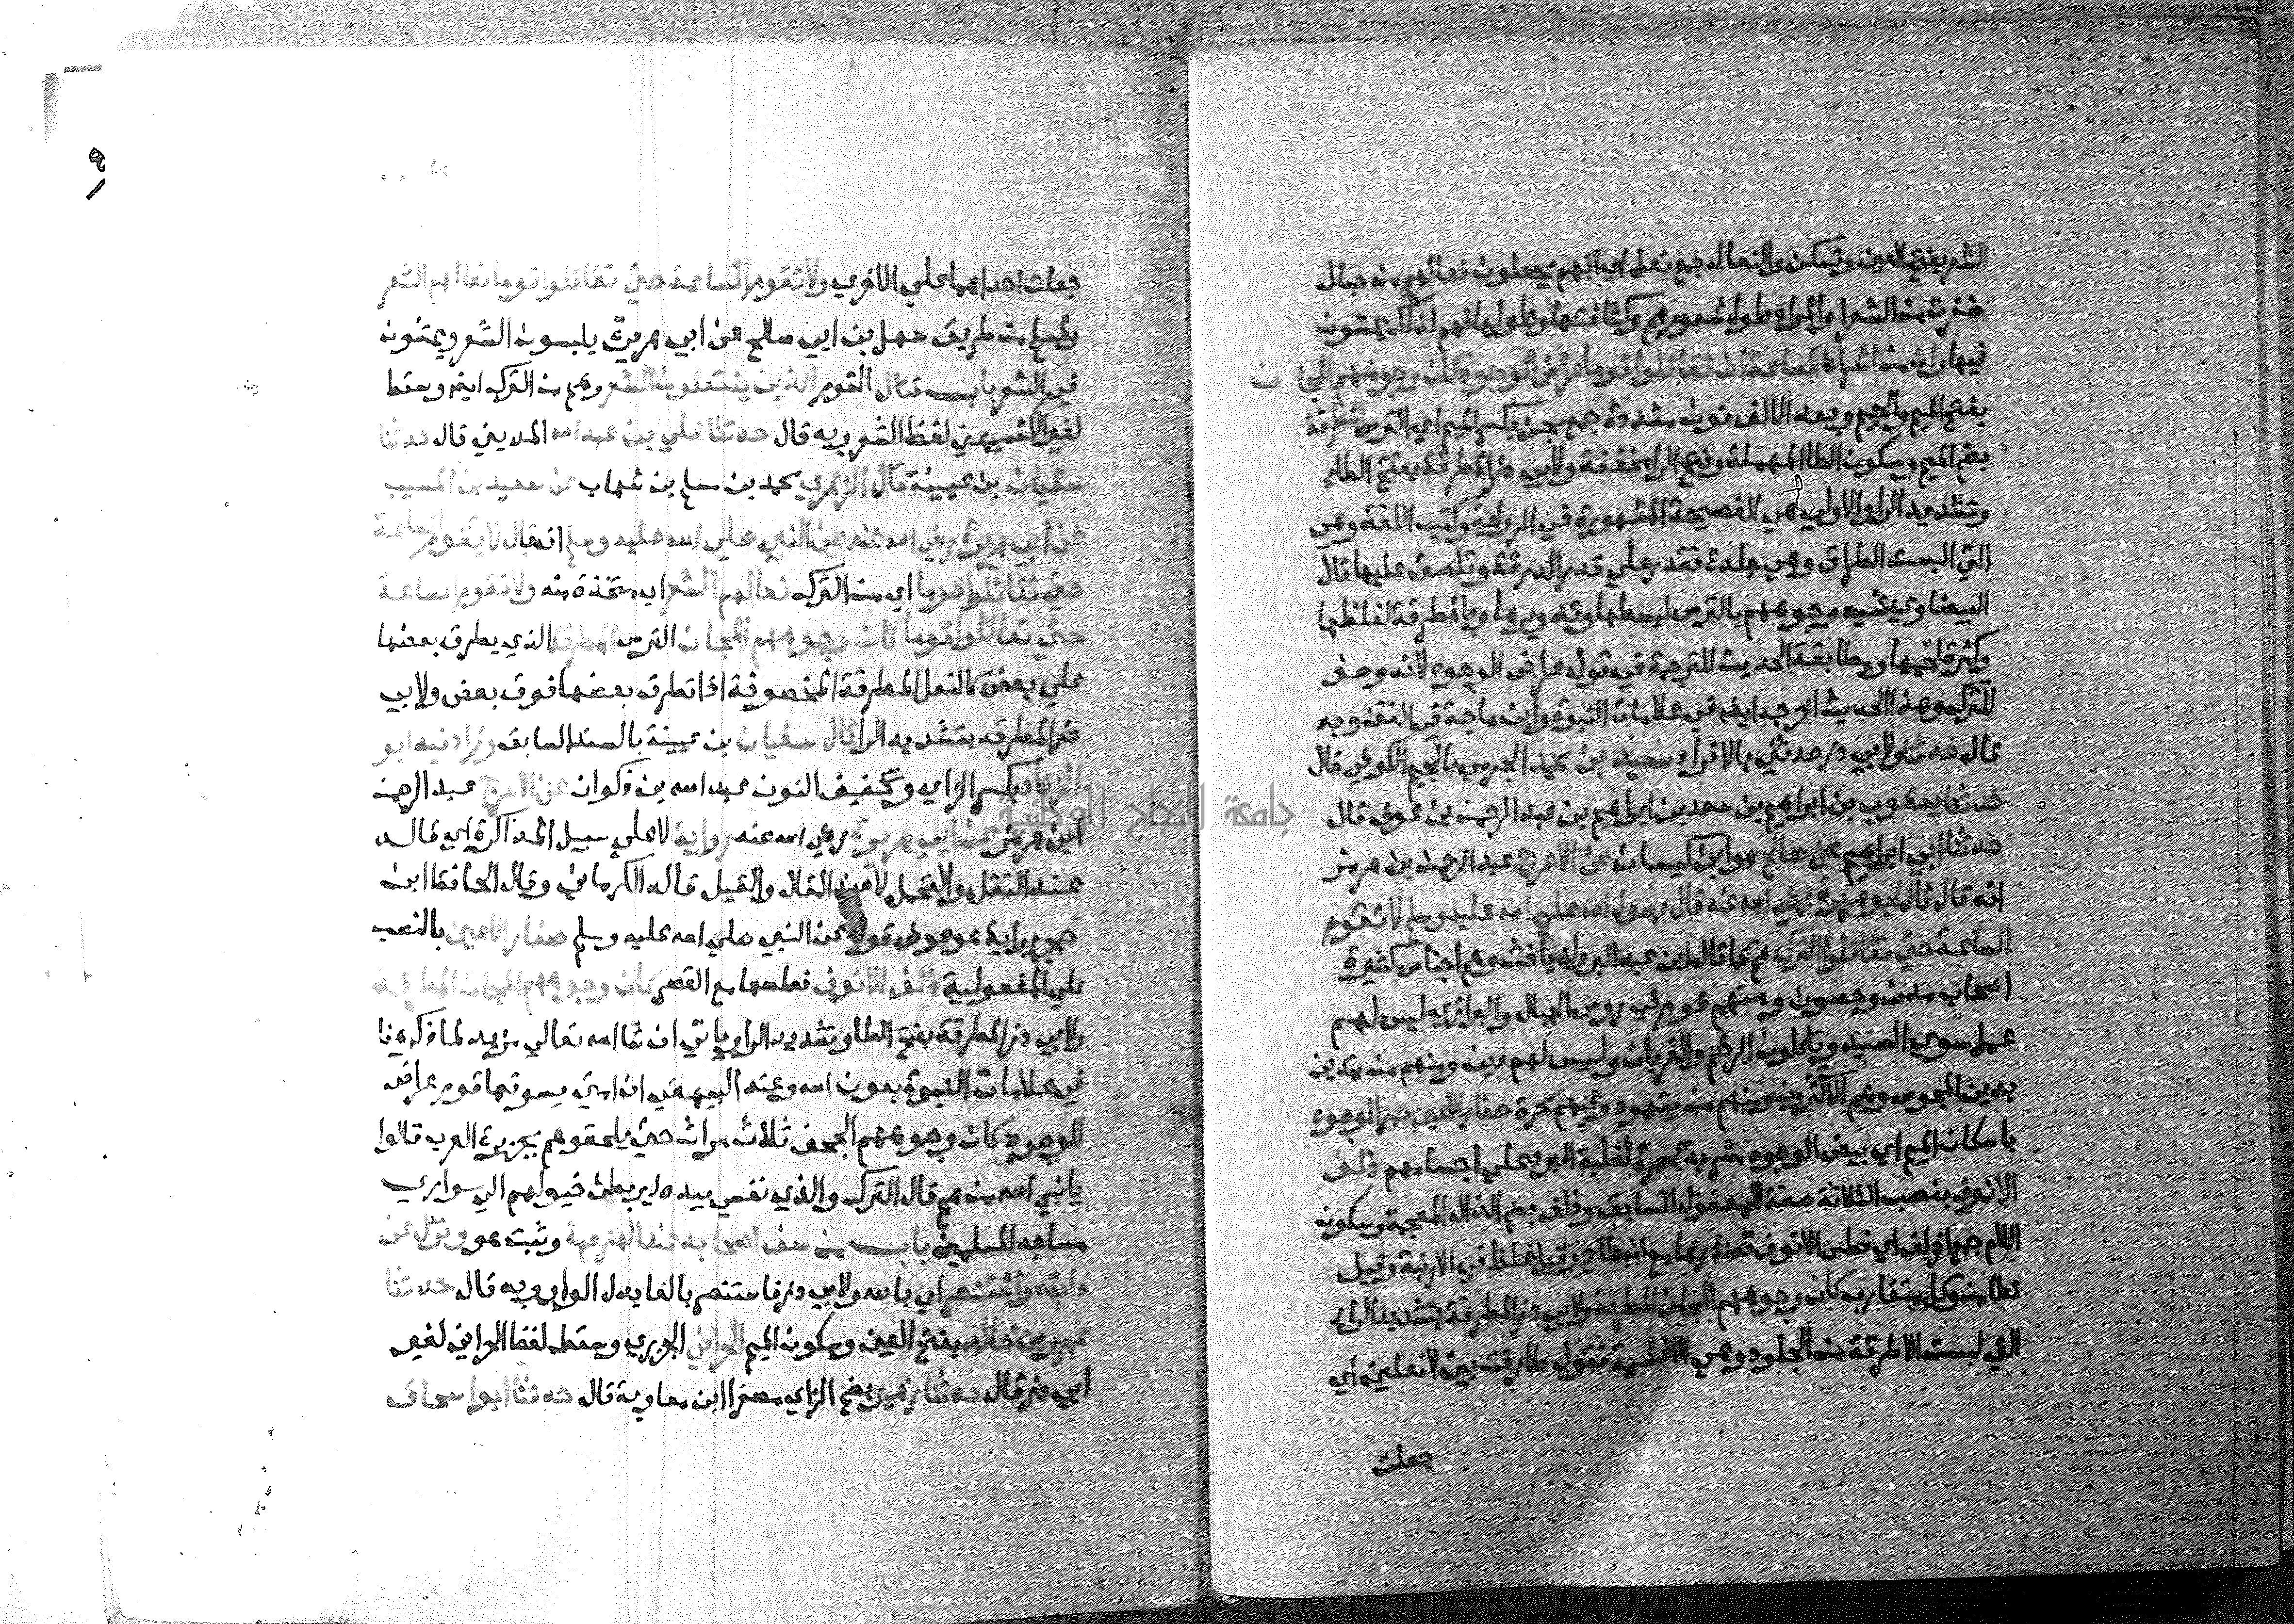 الشعر بفتح العين وتسكن والنعال جمع نعل اي انهم يجعلون نعالهم من حبال
ضفرت من الشعر او المراد طول شعورهم وكثافتها وطولها فهم لذلك يمشون
فيها وان من اشراط الساعة ان تقاتلوا قوما عراض الوجوه كان وجوههم المجان
بفتح الميم والجيم وبعد الالف نون مشددة جمع مجن بكسر الميم اي الترس المطرقة
بضم الميم وسكون الطا المهملة وفتح الرا مخففة ولابي ذر المطرقة بفتح الطاء
وتشديد الرا والاولى هي الفصيحة المشهورة في الرواية وكتب اللغة وهي
التي البست الطراق وهي جلدة تقدر علي قدر الدرقة وتلصق عليها قال
البيضاوي شبه وجوههم بالترس لبسطها وتدويرها وبالمطرقة لغلظها
وكثرة لحمها ومطابقة الحديث للترجمة في قوله عراض الوجوه لانه وصف
للترك وهذا الحديث اخرجه ايضا في علامات النبوة وابن ماجة في الفتن وبه
قال حدثنا ولابي ذر حدثني بالافراد سعيد بن محمد الجرمي بالجيم الكوفي قال
حدثنا يعقوب بن ابراهيم بن سعد بن ابراهيم بن عبد الرحمن بن عوف قال
حدثنا ابي ابراهيم عن صالح هو ابن كيسان عن الاعرج عبد الرحمن بن هرمز
انه قال قال ابو هريرة رضي الله عنه قال رسول الله صلي الله عليه وسلم لا تقوم
الساعة حتي تقاتلوا الترك هم كما قال ابن عبد البر ولد يافث وهم اجناس كثيرة
اصحاب مدن وحصون ومنهم قوم في روس الجبال والبراري ليس لهم
عمل سوي الصيد وياكلون الرخم والغربان وليس لهم دين ومنهم من يتدين
بدين المجوس وهم الاكثرون ومنهم من يتهود وفيهم سحرة صغار الاعين حمر الوجوه
باسكان الميم اي بيض الوجوه مشربة بحمرة لغلبة البرد علي اجسامهم ذلف
الانوف بنصب الثلاثة صفة للمفعول السابق وذلف بضم الذال المعجمة وسكون
اللام جمع اذلف اي فطس الانوف قصارها مع انبطاح وقيل غلظ في الارنبة وقيل
تطامن وكل متقارب كان وجوههم المجان المطرقة ولابي ذر المطرقة بتشديد الراء
التي لبست الاطرقة من الجلود وهي الاغشية تقول طارقت بين النعلين اي
جعلت
جعلت احداهما علي الاخري ولا تقوم الساعة حتي تقاتلوا قوما نعالهم الشعر
ولمسلم من طريق سهل بن ابي صالح عن ابي هريرة يلبسون الشعر ويمشون
في الشعر باب قتال القوم الذين ينتعلون الشعر وهم من الترك ايضا وسقط
لغير الكشميهني لفظ الشعر وبه قال حدثنا علي بن عبد الله المديني قال حدثنا
سفيان بن عيينة قال الزهري محمد بن مسلم بن شهاب عن سعيد بن المسيب
عن ابي هريرة رضي الله عنه عن النبي صلي الله عليه وسلم انه قال لا تقوم الساعة
حتي تقاتلوا قوما اي من الترك نعالهم الشعر اي متخذة منه ولا تقوم الساعة
حتي تقاتلوا قوما كان وجوههم المجان الترس المطرقة الذي يطرق بعضها
علي بعض كالنعل المطرقة المخصوفة اذا تطرق بعضها فوق بعض ولابي
ذر المطرقه بتشديد الرا قال سفيان بن عيينة بالسند السابق وزاد فيه ابو
الزناد بكسر الزاي وتخفيف النون عبد الله بن ذكوان عن الاعرج عبد الرحمن
ابن هرمز عن ابي هريرة رضي الله عنه رواية لا علي سبيل المذاكرة اي قاله
عند النقل والتحمل لا عند القال والقيل قاله الكرماني وقال الحافظ ابن
حجر رواية هو عوض قوله عن النبي صلي الله عليه وسلم صغار الاعين بالنصب
علي المفعولية ذلف الانوف فطسها مع القصر كان وجوههم المجان المطرقة
ولابي ذر المطرقة بفتح الطا وتشديد الرا وياتي ان شا الله تعالي مزيد لما ذكر هنا
في علامات النبوة بعون الله وعند البيهقي ان امتي يسوقها قوم عراض
الوجوه كان وجوههم الجحف ثلاث مرات حتي يلحقوهم بجزيرة العرب قالوا
يا نبي الله من هم قال الترك والذي نفسي بيده ليربطن خيولهم الي سواري
مساجد المسلمين باب من صف اصحابه عند الهزيمة وثبت هو ونزل عن
دابته واستنصر اي بالله ولابي ذر فاستنصر بالفا بدل الواو وبه قال حدثنا
عمرو بن خالد بفتح العين وسكون الميم الحراني الجزري وسقط لفظ الحراني لغير
ابي ذر قال حدثنا زهير بضم الزاي مصغرا ابن معاوية قال حدثنا ابو اسحاق
جامعة النجاح الوطنية
٩